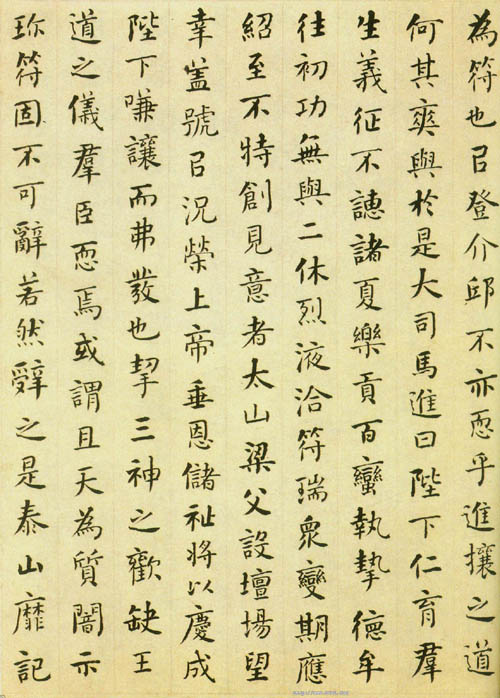 為符也㠯登介邱不亦恧乎進攘之道
何其爽與於是大司馬進曰陛下仁育羣
生義征不譓諸夏樂貢百蠻執摯德牟
往初功無與二休烈液洽符瑞衆變期應
紹至不特創見意者太山梁父設壇場望
幸葢號㠯況榮上帝垂恩儲祉將以慶成
陛下嗛讓而弗發也挈三神之歡缺王
道之儀羣臣恧焉或謂且天為質闇示
珎符固不可辭若然辭之是泰山靡記